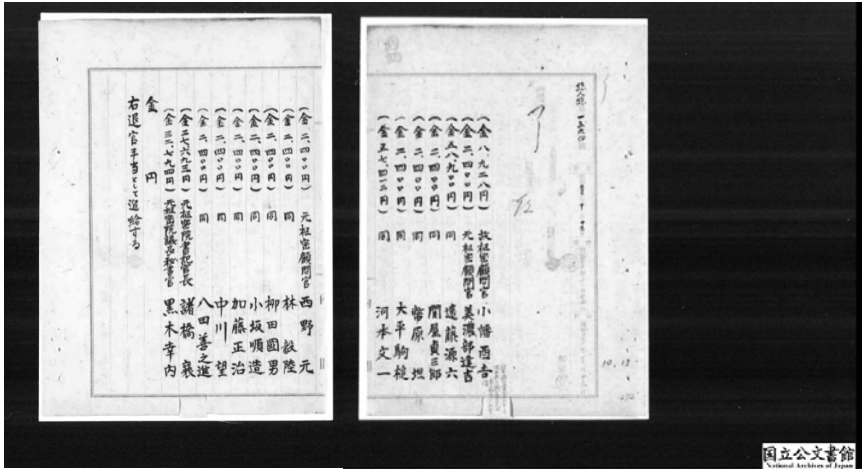 (金 八、九二八円) 故枢密顧問官 小幡酉吉
(金 二、四〇〇円) 元枢密顧問官 美濃部達吉
(金 五八、九〇〇円) 同 遠藤源六
(金 二、四〇〇円) 同 関屋貞三郎
(金 二、四〇〇円) 同 幣原坦
(金 二、四〇〇円) 同 大平駒槌
(金 五七、四一二円) 同 河本文一
(金 二、四〇〇円) 元枢密顧問官 西野元
(金 二、四〇〇円) 同 林毅陸
(金 二、四〇〇円) 同 柳田國男
(金 二、四〇〇円) 同 小坂順造
(金 二、四〇〇円) 同 加藤正治
(金 二、四〇〇円) 同 中川望
(金 二、四〇〇円) 同 八田善之進
(金 二七、六九三円) 元枢密院書記官長 諸橋襄
(金 三三、七九四円) 元枢密院議長秘書官 黒木幸内
金 円
右退官手当として進給する
10.18
272
国立公文書館
National Archives of Japan